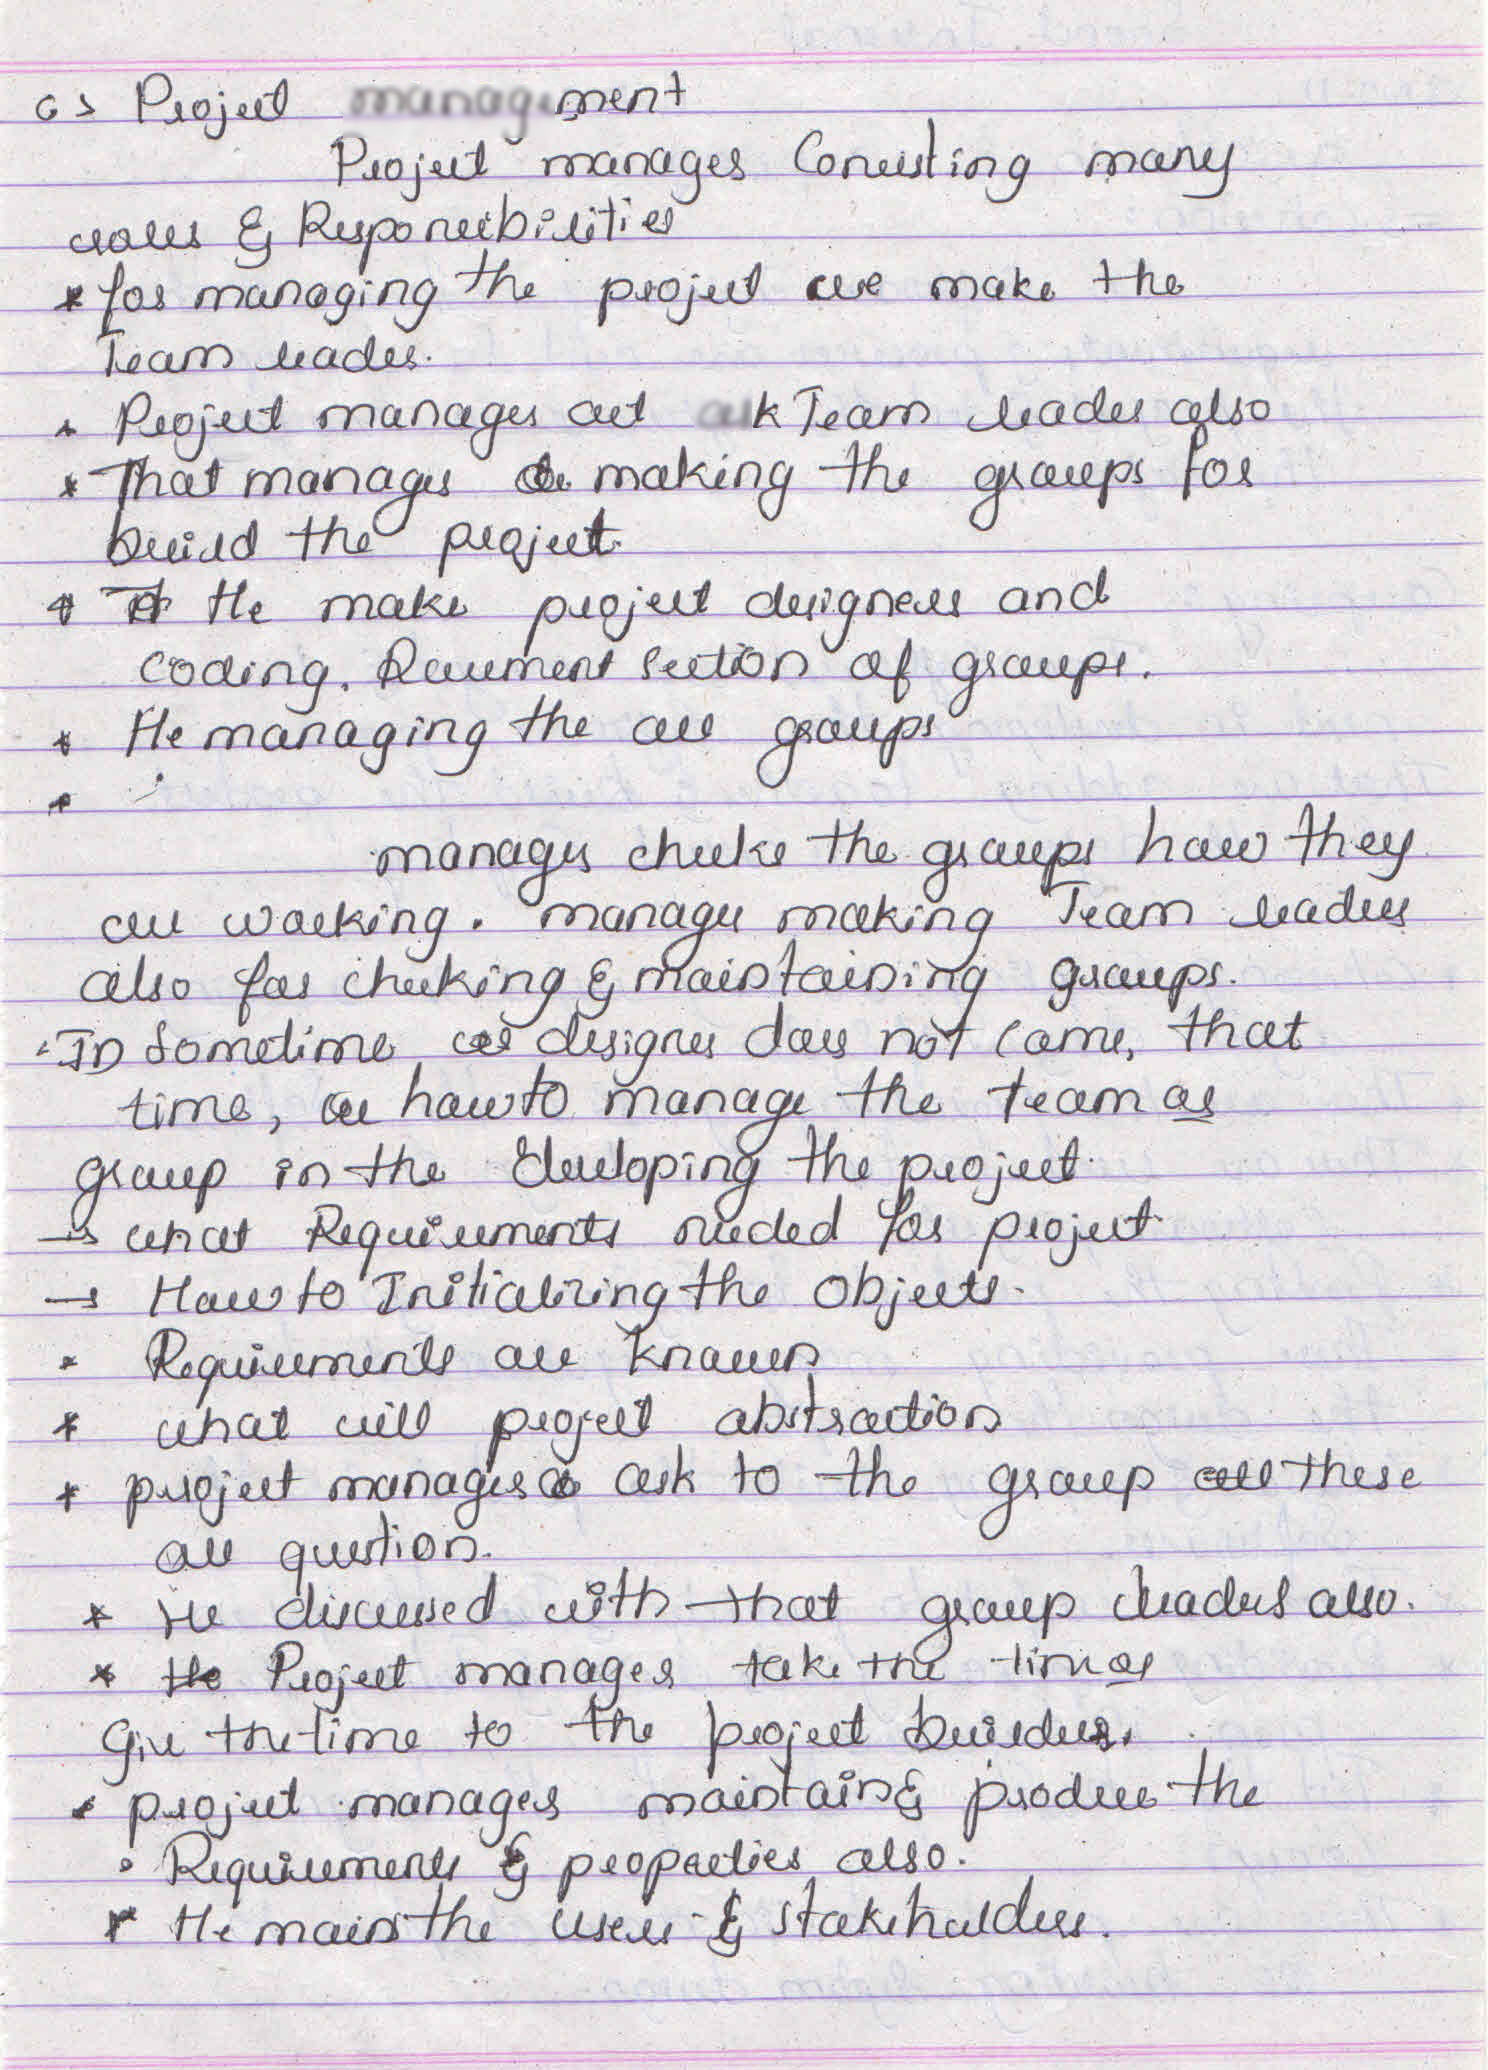 6> Project management
Project manager Consisting many
roles & Responsibilities
* for managing the project we make the
Team leader.
* Project manager act ask Team leader also
* That manager making the groups for
build the project
* He make project designers and
coding. Document section of groups.
* He managing the all groups
*
manager checks the groups how they
are working. manager making Team leaders
also for checking & maintaining groups.
In Sometime designer does not come, that
time, how to manage the team as
group in the developing the project.
→ what Requirements needed for project
→ How to Initializing the objects.
* Requirements are known
* what will project abstraction
* project manager ask to the group these
all question.
* He discussed with that group leaders also.
* Project manager take the time as
Give the time to the project builders.
* project manager maintain & produce the
• Requirements & properties also.
* He main the users & stakeholders.